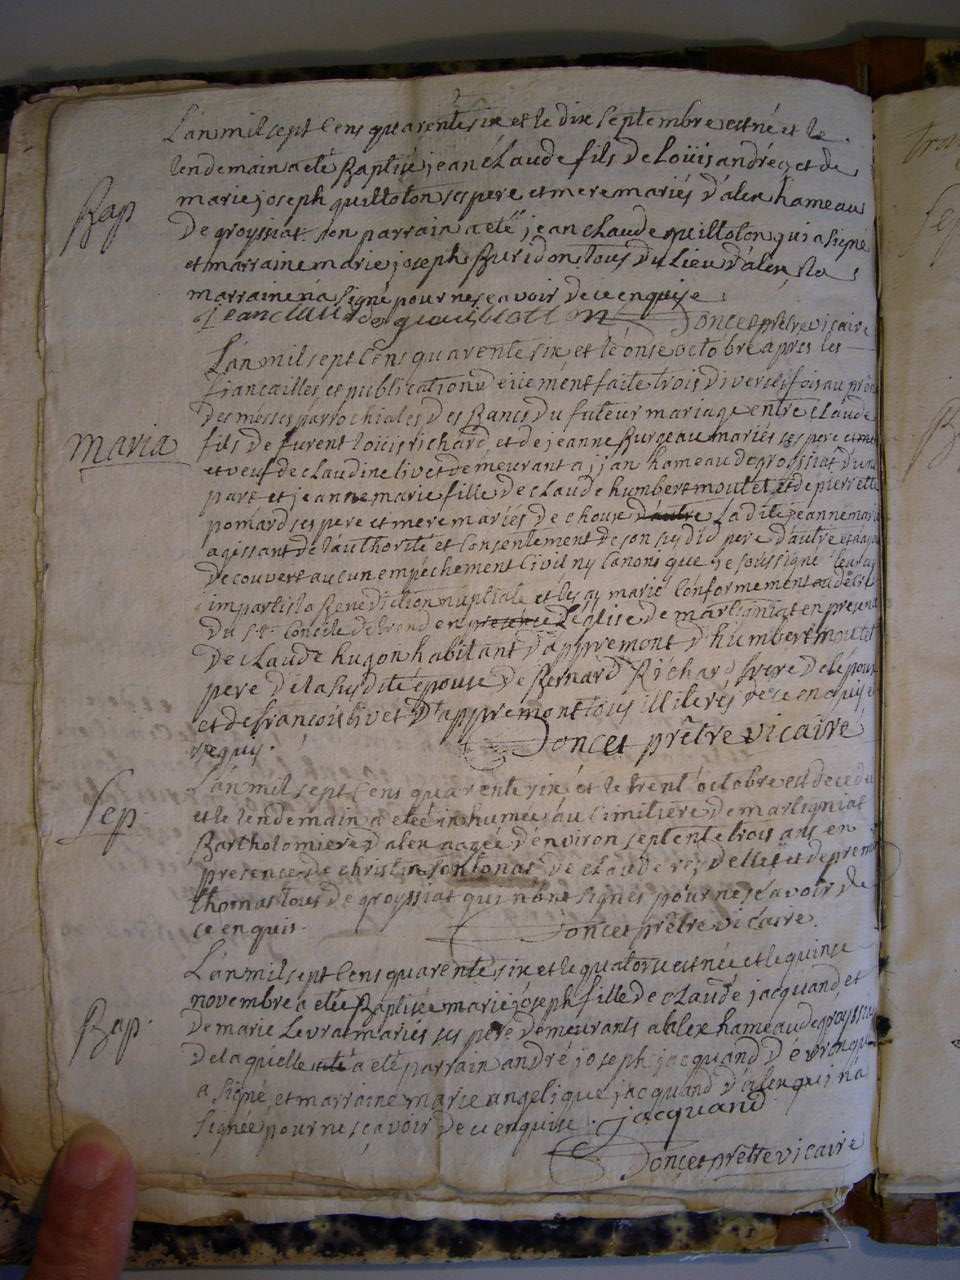 L'an mil sept Cens quarente six et le dix septembre est né et le
lendemain a eté Baptisé jean cLaude fils de Loüis andréz et de
marie joseph quillioton ses pere et mere mariés d'alex hameau
Bap
De groyssiat son parrain a eté jean claude quillioton qui a signé
et marraine marie joseph Buridon tous du Lieu d'alex la
marraine n'a signé pour ne sçavoir de ce enquise
jean claude quillotton Doncet prêtre vicaire
L'an mil sept Cens quarente six et le onse octobre apres les
fiancailles et publications deüement faite trois diverses fois au prône
Des messes parrochiales des Bancs du futeur mariage entre claude
maria
fils de furent loüis richard et de jeanne Burgeau mariés ses pere et
et veuf de claudine livet demeurant a hameau de groissiat d'une
part et jeanne marie fille de claude humbert moulet et de pierrette
pomard ses pere et mere mariés de chouse d'autre La dite jeanne marie
agissant de l'authorité et consentement de son sus dit pere d'autre et
Decouvert aucun empêchement Civil ny Canonique je soussigné
imparti la Benediction nuptiale et les ay marié Conformement au decret
Du St. Concile de trend en presence L'eglise de martigniat en presence
De cLaude hugon habitant d'appremont d'humbert moulet
pere de la sus dite epouse de Bernard Richard frere de l'epoux
et de francois livet D'appremont tous illiteres de ce enquis et
requis. Doncet prêtre vicaire
L'an mil sept Cens quarente six et le trent octobre est decedée
Sep.
et le lendemain a eté inhumée au Cimitiere de martigniat
Bartholomiere d'alex aagée d'environ septente trois ans en
presence de christin sontonas De claude rey dellet et de
thomas tous de groyssiat qui n'ont signés pour ne sçavoir de
ce enquis. Doncet prêtre vicaire.
L'an mil sept Cens quarente six et le quatorse est née et le quinse
novembre a eté Baptisée marie joseph fille de cLaude jacquand et
Bap.
De marie Levrat mariés ses pere demeurants a alex hameau de groyssiat
De laquelle a eté parrain andré joseph jacquand
a signé et marraine marie angelique jacquand d'alex qui n'a
signée pour ne sçavoir de ce enquise. jacquand
Doncet prêtre vicaire